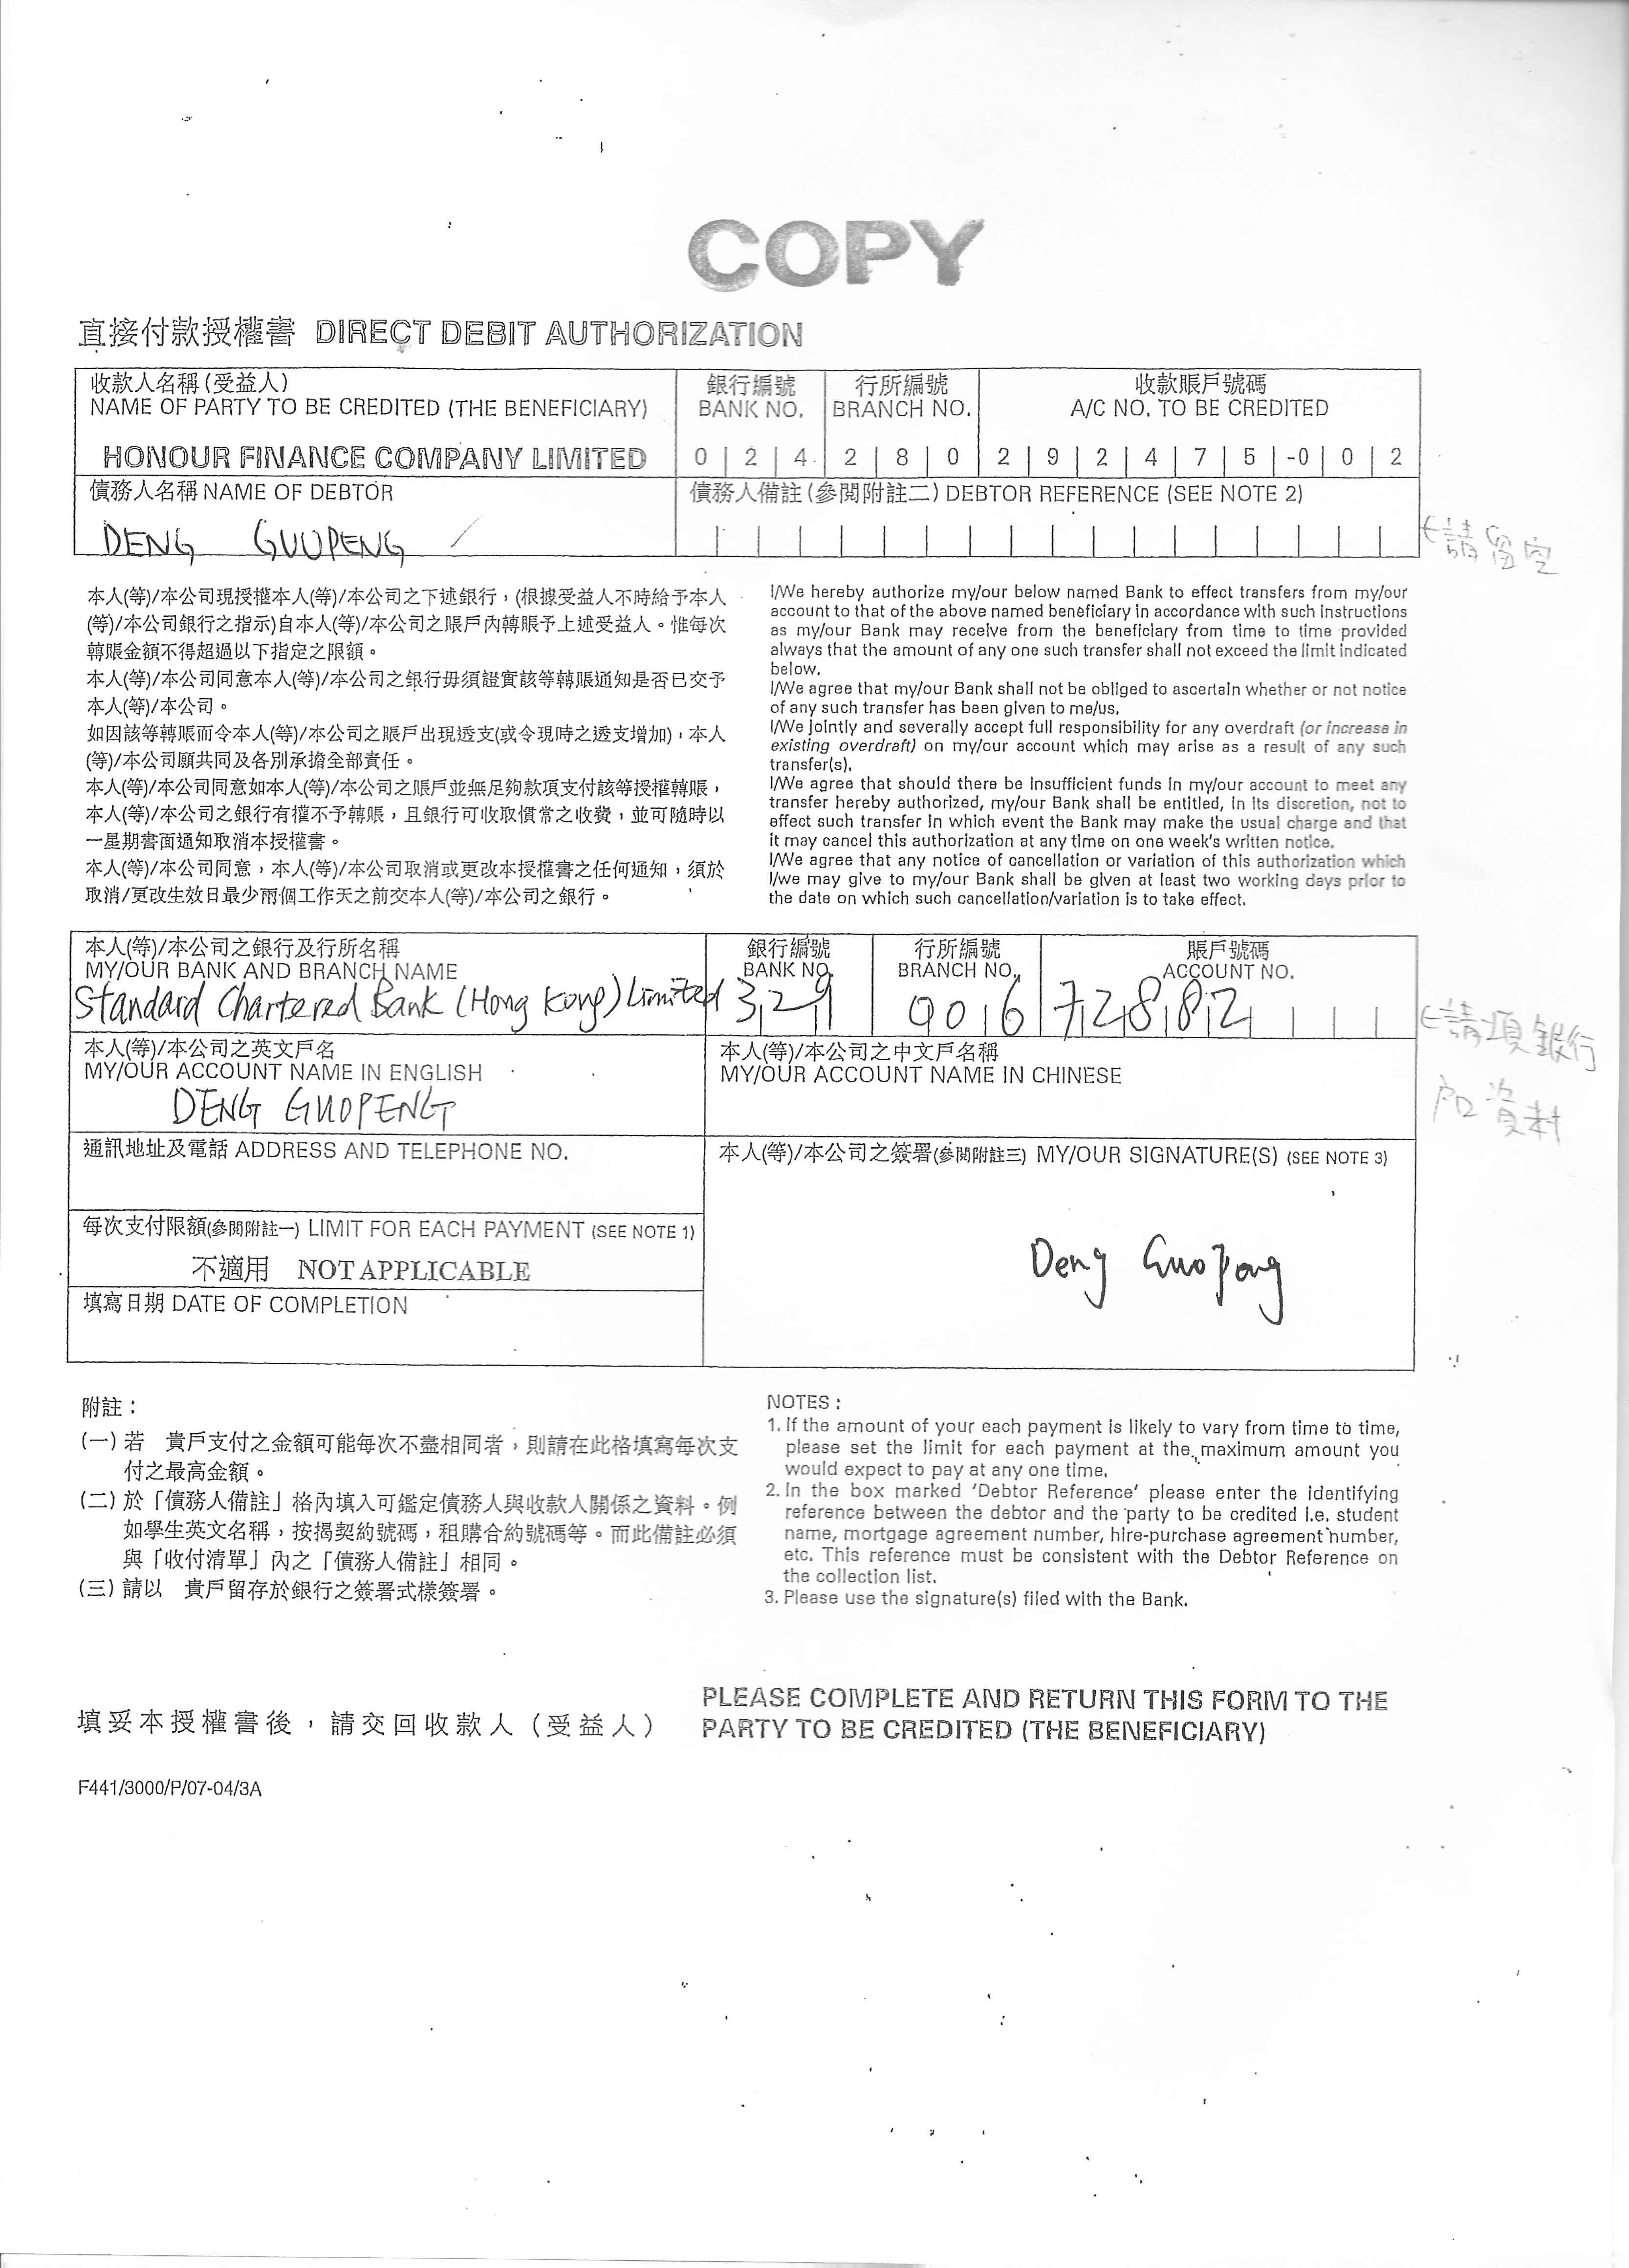 COPY
直接付款授權書 DIRECT DEBIT AUTHORIZATION
收款人名稱(受益人)
NAME OF PARTY TO BE CREDITED (THE BENEFICIARY)
HONOUR FINANCE COMPANY LIMITED
銀行編號
BANK NO.
0 2 4
行所編號
BRANCH NO.
2 8 0
收款賬戶號碼
A/C NO. TO BE CREDITED
2 9 2 4 7 5 -0 0 2
債務人名稱 NAME OF DEBTOR
DENG GUOPENG
債務人備註(參閱附註二) DEBTOR REFERENCE (SEE NOTE 2)
請留空
本人(等)/本公司現授權本人(等)/本公司之下述銀行,(根據受益人不時給予本人
(等)/本公司銀行之指示)自本人(等)/本公司之賬戶內轉賬予上述受益人。惟每次
轉賬金額不得超過以下指定之限額。
本人(等)/本公司同意本人(等)/本公司之銀行毋須證實該等轉賬通知是否已交予
本人(等)/本公司。
如因該等轉賬而令本人(等)/本公司之賬戶出現透支(或令現時之透支增加),本人
(等)/本公司願共同及各別承擔全部責任。
本人(等)/本公司同意如本人(等)/本公司之賬戶並無足夠款項支付該等授權轉賬,
本人(等)/本公司之銀行有權不予轉賬,且銀行可收取慣常之收費,並可隨時以
一星期書面通知取消本授權書。
本人(等)/本公司同意,本人(等)/本公司取消或更改本授權書之任何通知,須於
取消/更改生效日最少兩個工作天之前交本人(等)/本公司之銀行。
I/We hereby authorize my/our below named Bank to effect transfers from my/our
account to that of the above named beneficiary in accordance with such instructions
as my/our Bank may receive from the beneficiary from time to time provided
always that the amount of any one such transfer shall not exceed the limit indicated
below.
I/We agree that my/our Bank shall not be obliged to ascertain whether or not notice
of any such transfer has been given to me/us.
I/We jointly and severally accept full responsibility for any overdraft (or increase in
existing overdraft) on my/our account which may arise as a result of any such
transfer(s).
I/We agree that should there be insufficient funds in my/our account to meet any
transfer hereby authorized, my/our Bank shall be entitled, in its discretion, not to
effect such transfer in which event the Bank may make the usual charge and that
it may cancel this authorization at any time on one week's written notice.
I/We agree that any notice of cancellation or variation of this authorization which
I/we may give to my/our Bank shall be given at least two working days prior to
the date on which such cancellation/variation is to take effect.
本人(等)/本公司之銀行及行所名稱
MY/OUR BANK AND BRANCH NAME
Standard Chartered Bank (Hong Kong) Limited
銀行編號
BANK NO.
329
行所編號
BRANCH NO.
9 0 6
賬戶號碼
ACCOUNT NO.
7 2 8 8 2
請填銀行
戶口資料
本人(等)/本公司之英文戶名
MY/OUR ACCOUNT NAME IN ENGLISH
DENG GUOPENG
本人(等)/本公司之中文戶名稱
MY/OUR ACCOUNT NAME IN CHINESE
通訊地址及電話 ADDRESS AND TELEPHONE NO.
本人(等)/本公司之簽署(參閱附註三) MY/OUR SIGNATURE(S) (SEE NOTE 3)
Deng Guopeng
每次支付限額(參閱附註一) LIMIT FOR EACH PAYMENT (SEE NOTE 1)
不適用 NOT APPLICABLE
填寫日期 DATE OF COMPLETION
附註:
(一)若 貴戶支付之金額可能每次不盡相同者,則請在此格填寫每次支
付之最高金額。
(二)於「債務人備註」格內填入可鑑定債務人與收款人關係之資料。例
如學生英文名稱,按揭契約號碼,租購合約號碼等。而此備註必須
與「收付清單」內之「債務人備註」相同。
(三)請以 貴戶留存於銀行之簽署式樣簽署。
NOTES :
1. If the amount of your each payment is likely to vary from time to time,
please set the limit for each payment at the maximum amount you
would expect to pay at any one time.
2. In the box marked 'Debtor Reference' please enter the identifying
reference between the debtor and the party to be credited i.e. student
name, mortgage agreement number, hire-purchase agreement number,
etc. This reference must be consistent with the Debtor Reference on
the collection list.
3. Please use the signature(s) filed with the Bank.
填妥本授權書後,請交回收款人(受益人)
PLEASE COMPLETE AND RETURN THIS FORM TO THE
PARTY TO BE CREDITED (THE BENEFICIARY)
F441/3000/P/07-04/3A